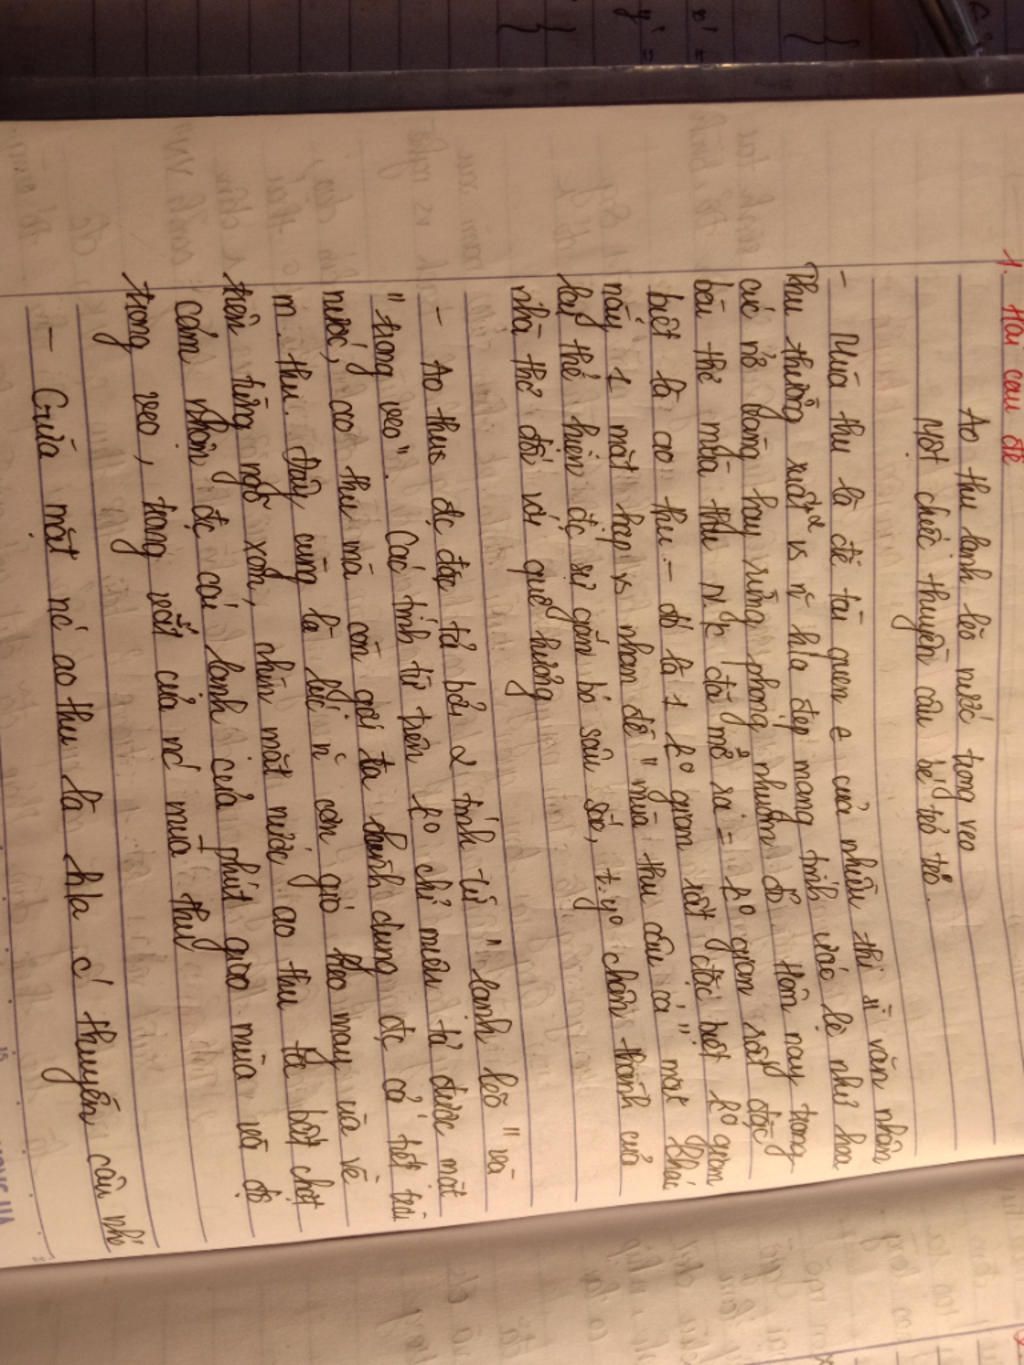 1. Hai câu đề
Ao thu lạnh lẽo nước trong veo
Một chiếc thuyền câu bé tẻo teo.
- Mùa thu là đề tài quen e của nhiều thi sĩ văn nhân
Thu thường xuất vs n~ h/a đẹp mang tính ước lệ như hoa
cúc nở vàng hay rừng phong nhuốm đỏ. Hôm nay trong
bài thơ mùa thu N.K đã mở ra = k° gian rất đặc
biệt là ao thu. - đó là 1 k° gian rất đặc biệt k° gian
này 1 mặt hợp vs nhan đề "mùa thu câu cá" mặt khác
lại thể hiện đc sự gắn bó sâu sắc, t.y° chân thành của
nhà thơ đối với quê hương
- Ao thu đc đặc tả bởi 2 tính từ "lạnh lẽo" và
"trong veo". Các tính từ trên k° chỉ miêu tả được mặt
nước, ao thu mà còn gợi ta hình dung đc cả tiết trời
m. thu. Đây cũng là lúc n~ cơn gió heo may ùa về
trên từng ngõ xóm, nhìn mặt nước ao thu ta bất chợt
cảm nhận đc cái lạnh của phút giao mùa và độ
trong veo, trong vắt của nc mùa thu
- Giữa mặt nc ao thu là h/a c' thuyền câu nhỏ